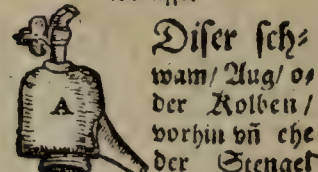 A
Diser sch⸗
wam/ Aug/ o⸗
der Kolben/
vorhin vñ ehe
der Stengel